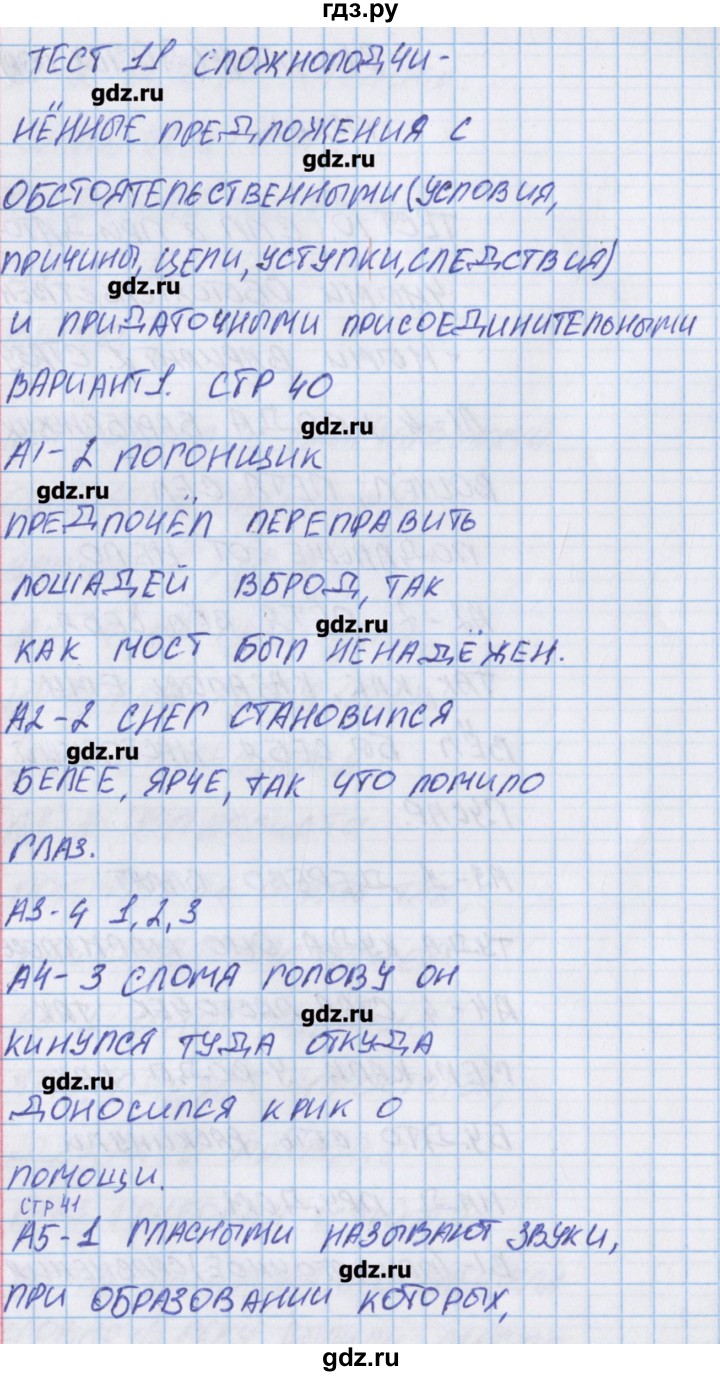 гдз.ру
ТЕСТ 11 СЛОЖНОПОДЧИ-
gdz.ru
НЁННЫЕ ПРЕДЛОЖЕНИЯ С
gdz.ru
ОБСТОЯТЕЛЬСТВЕННЫМИ (УСЛОВИЯ,
ПРИЧИНЫ, ЦЕЛИ, УСТУПКИ, СЛЕДСТВИЯ)
gdz.ru
И ПРИДАТОЧНЫМИ ПРИСОЕДИНИТЕЛЬНЫМИ
ВАРИАНТ 1. СТР 40
gdz.ru
А1-2 ПОГОНЩИК
gdz.ru
ПРЕДПОЧЁЛ ПЕРЕПРАВИТЬ
ЛОШАДЕЙ ВБРОД, ТАК
gdz.ru
КАК МОСТ БЫЛ НЕНАДЁЖЕН.
А2-2 СНЕГ СТАНОВИЛСЯ
gdz.ru
БЕЛЕЕ, ЯРЧЕ, ТАК ЧТО ЛОМИЛО
ГЛАЗ.
А3-4 1,2,3
А4-3 СЛОМА ГОЛОВУ ОН
gdz.ru
КИНУЛСЯ ТУДА ОТКУДА
gdz.ru
ДОНОСИЛСЯ КРИК О
ПОМОЩИ.
СТР 41
А5-1 ГЛАСНЫМИ НАЗЫВАЮТ ЗВУКИ,
gdz.ru
ПРИ ОБРАЗОВАНИИ КОТОРЫХ,
gdz.ru